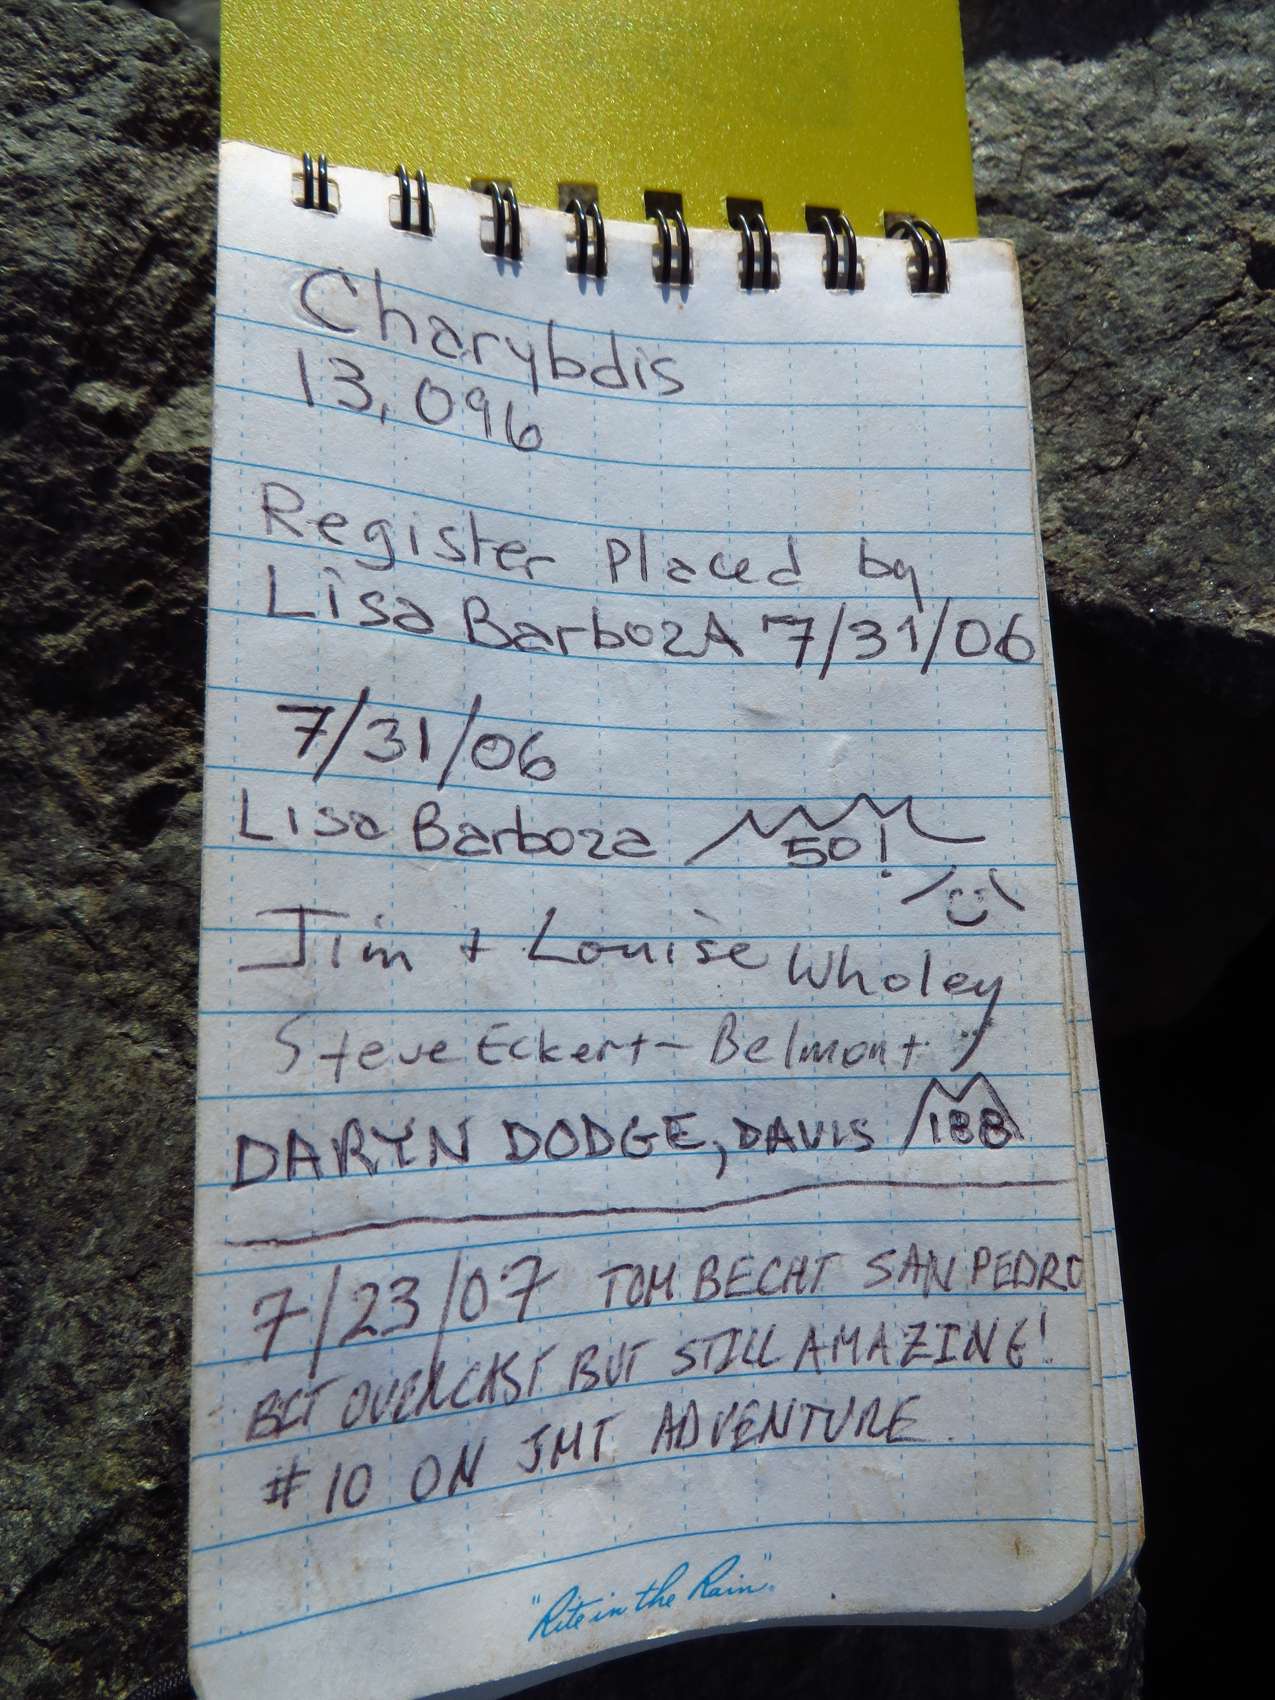 Charybdis
13,096
Register Placed by
Lisa BarbozA 7/31/06
7/31/06
Lisa Barboza 50!
Jim + Louise Wholey
Steve Eckert - Belmont
DARYN DODGE, DAVIS 188
7/23/07 TOM BECHT SAN PEDRO
BIT OVERCAST BUT STILL AMAZING!
# 10 ON JMT ADVENTURE.
"Rite in the Rain"